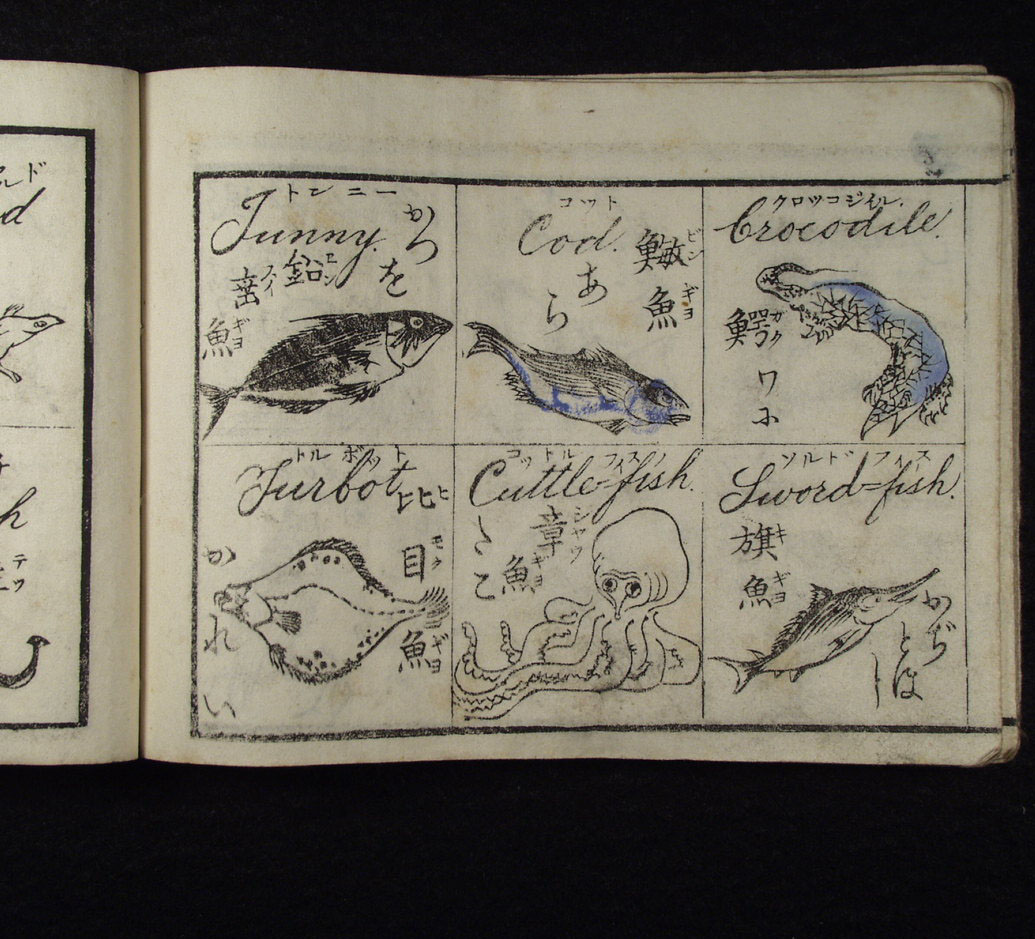 トンニー
Tunny.
かつ
を
鉛セン
スイ
魚ギヨ
コット
Cod.
あら
鰵ビン
魚ギヨ
クロツコジイル.
Crocodile.
鰐ガク
ワニ
トルボット
Turbot
比ヒ
目モク
魚ギヨ
かれい
コットルフィスノ
Cuttle=fish.
章シヤウ
魚ギヨ
たこ
ソルドフィス
Sword=fish.
旗キ
魚ギヨ
かぢ
とほ
し
ルド
d
h
テツ